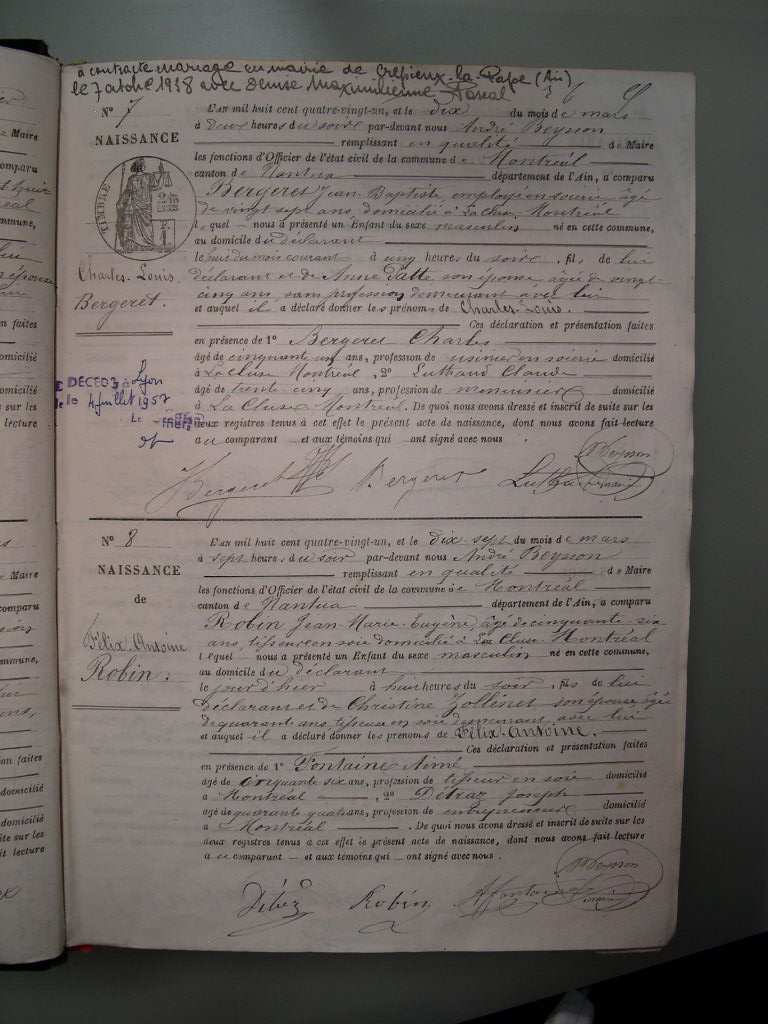 a contracté mariage en mairie de Crépieux-la-Pape (Ain)
le 7 octobre 1938 avec Denise Maximilienne Pascal
N° 7
NAISSANCE
TIMBRE
Charles-Louis
Bergeret.
DÉCÉDÉ à Lyon
le 4 juillet 1957
L'AN mil huit cent quatre-vingt-un, et le dix du mois de mars
à deux heures du soir par-devant nous André Beysson
remplissant en qualité de Maire
les fonctions d'Officier de l'état civil de la commune de Montréal
canton de Nantua département de l'Ain, a comparu
Bergeret Jean-Baptiste, employé en soierie, âgé
de vingt sept ans, domicilié à La Cluse, Montréal
lequel nous a présenté un Enfant du sexe masculin né en cette commune,
au domicile du déclarant
le huit du mois courant à cinq heures du soir, fils de lui
déclarant et de Anne son épouse, âgée de vingt-
cinq ans, sans profession demeurant avec lui
et auquel il a déclaré donner les prénoms de Charles-Louis.
Ces déclaration et présentation faites
en présence de 1° Bergeret Charles
âgé de cinquante un ans, profession de en soierie domicilié
à La Cluse Montréal, 2° Luthaud Claude
âgé de trente cinq ans, profession de menuisier domicilié
à La Cluse Montréal. De quoi nous avons dressé et inscrit de suite sur les
deux registres tenus à cet effet le présent acte de naissance, dont nous avons fait lecture
au comparant et aux témoins qui ont signé avec nous.
Beysson
Bergeret Bergeret Luthaud
N° 8
NAISSANCE
de
Félix-Antoine
Robin.
L'AN mil huit cent quatre-vingt-un, et le dix-sept du mois de mars
à sept heures du soir par-devant nous André Beysson
remplissant en qualité de Maire
les fonctions d'Officier de l'état civil de la commune de Montréal
canton de Nantua département de l'Ain, a comparu
Robin Jean-Marie-Eugène, âgé de cinquante six
ans, tisseur en soie domicilié à La Cluse Montréal
lequel nous a présenté un Enfant du sexe masculin né en cette commune,
au domicile du déclarant
le jour d'hier à huit heures du soir, fils de lui
déclarant et de Christine son épouse, âgée
de quarante ans, tisseuse en soie demeurant avec lui
et auquel il a déclaré donner les prénoms de Félix-Antoine.
Ces déclaration et présentation faites
en présence de 1° Fontaine Aimé
âgé de cinquante six ans, profession de tisseur en soie domicilié
à Montréal, 2° Détraz Joseph
âgé de quarante quatre ans, profession de entrepreneur domicilié
à Montréal. De quoi nous avons dressé et inscrit de suite sur les
deux registres tenus à cet effet le présent acte de naissance, dont nous avons fait lecture
au comparant et aux témoins qui ont signé avec nous.
Beysson
Robin Fontaine